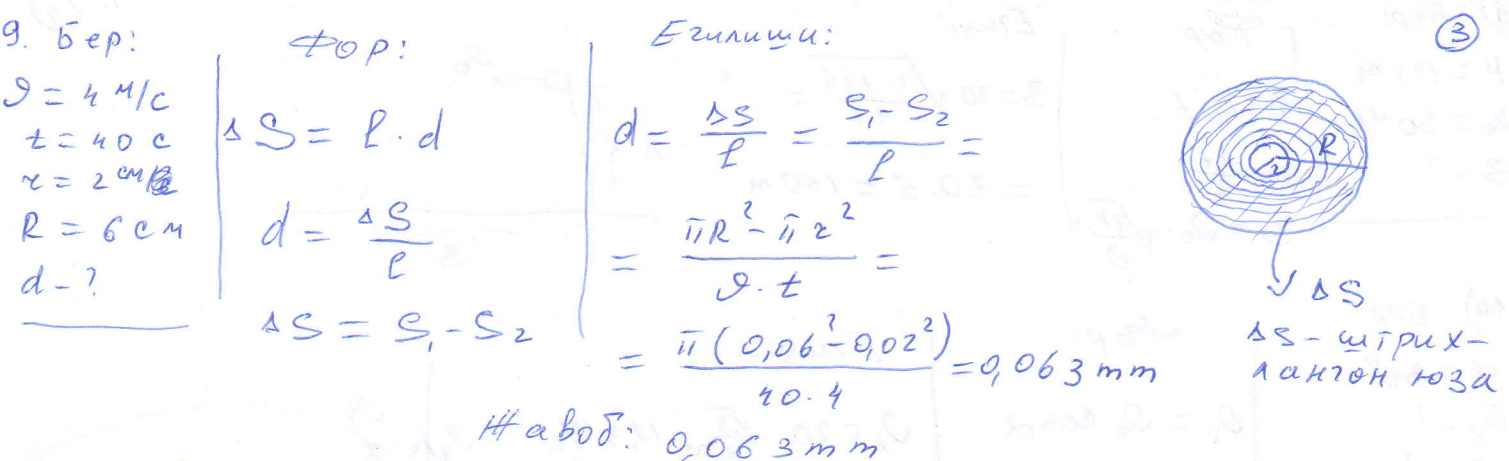 9. Бер:
ϑ = 4 м/с
t = 40 с
r = 2 см
R = 6 см
d - ?
Фор:
ΔS = l · d
d = ΔS / l
ΔS = S₁ - S₂
Егилиши:
d = ΔS / l = (S₁ - S₂) / l =
= (πR² - πr²) / (ϑ · t) =
= π(0,06² - 0,02²) / (40 · 4) = 0,063 mm
Жавоб: 0,063 mm
3
R
r
ΔS
ΔS - штрих-
лангон юза